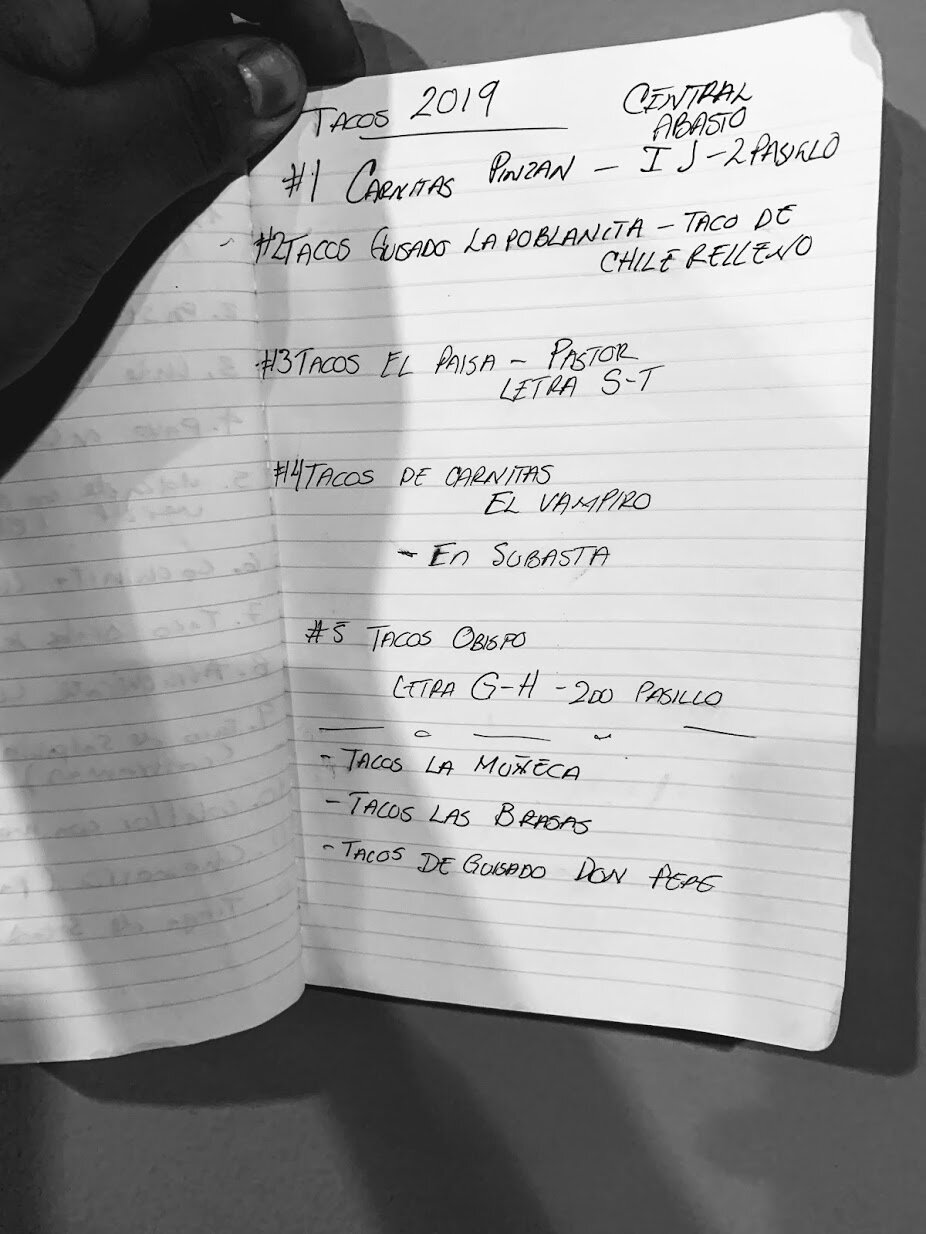 TACOS 2019
CENTRAL
ABASTO
#1 CARNITAS PINZAN - I J - 2 PASILLO
#2 TACOS GUISADO LA POBLANCITA - TACO DE
CHILE RELLENO
#3 TACOS EL PAISA - PASTOR
LETRA S-T
#4 TACOS DE CARNITAS
EL VAMPIRO
- EN SUBASTA
#5 TACOS OBISPO
LETRA G-H - 2DO PASILLO
- TACOS LA MUÑECA
- TACOS LAS BRASAS
- TACOS DE GUISADO DON PEPE